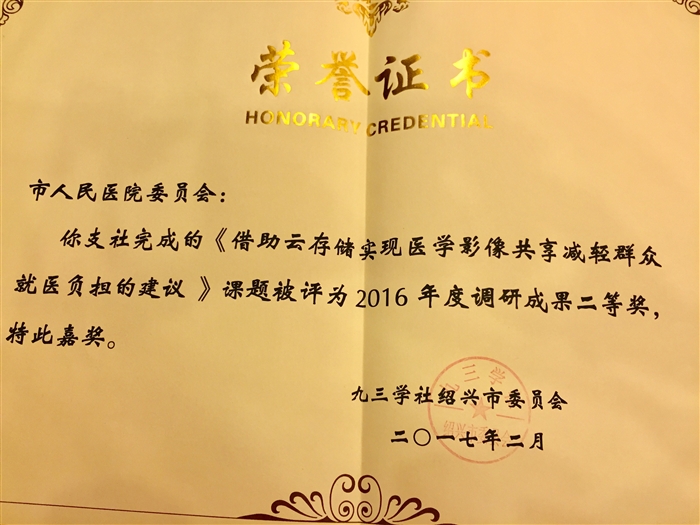 荣誉证书
HONORARY CREDENTIAL
市人民医院委员会：
你支社完成的《借助云存储实现医学影像共享减轻群众
就医负担的建议 》课题被评为2016 年度调研成果二等奖，
特此嘉奖。
九三学
九三学社绍兴市委员会
绍兴市委员会
二〇一七年二月